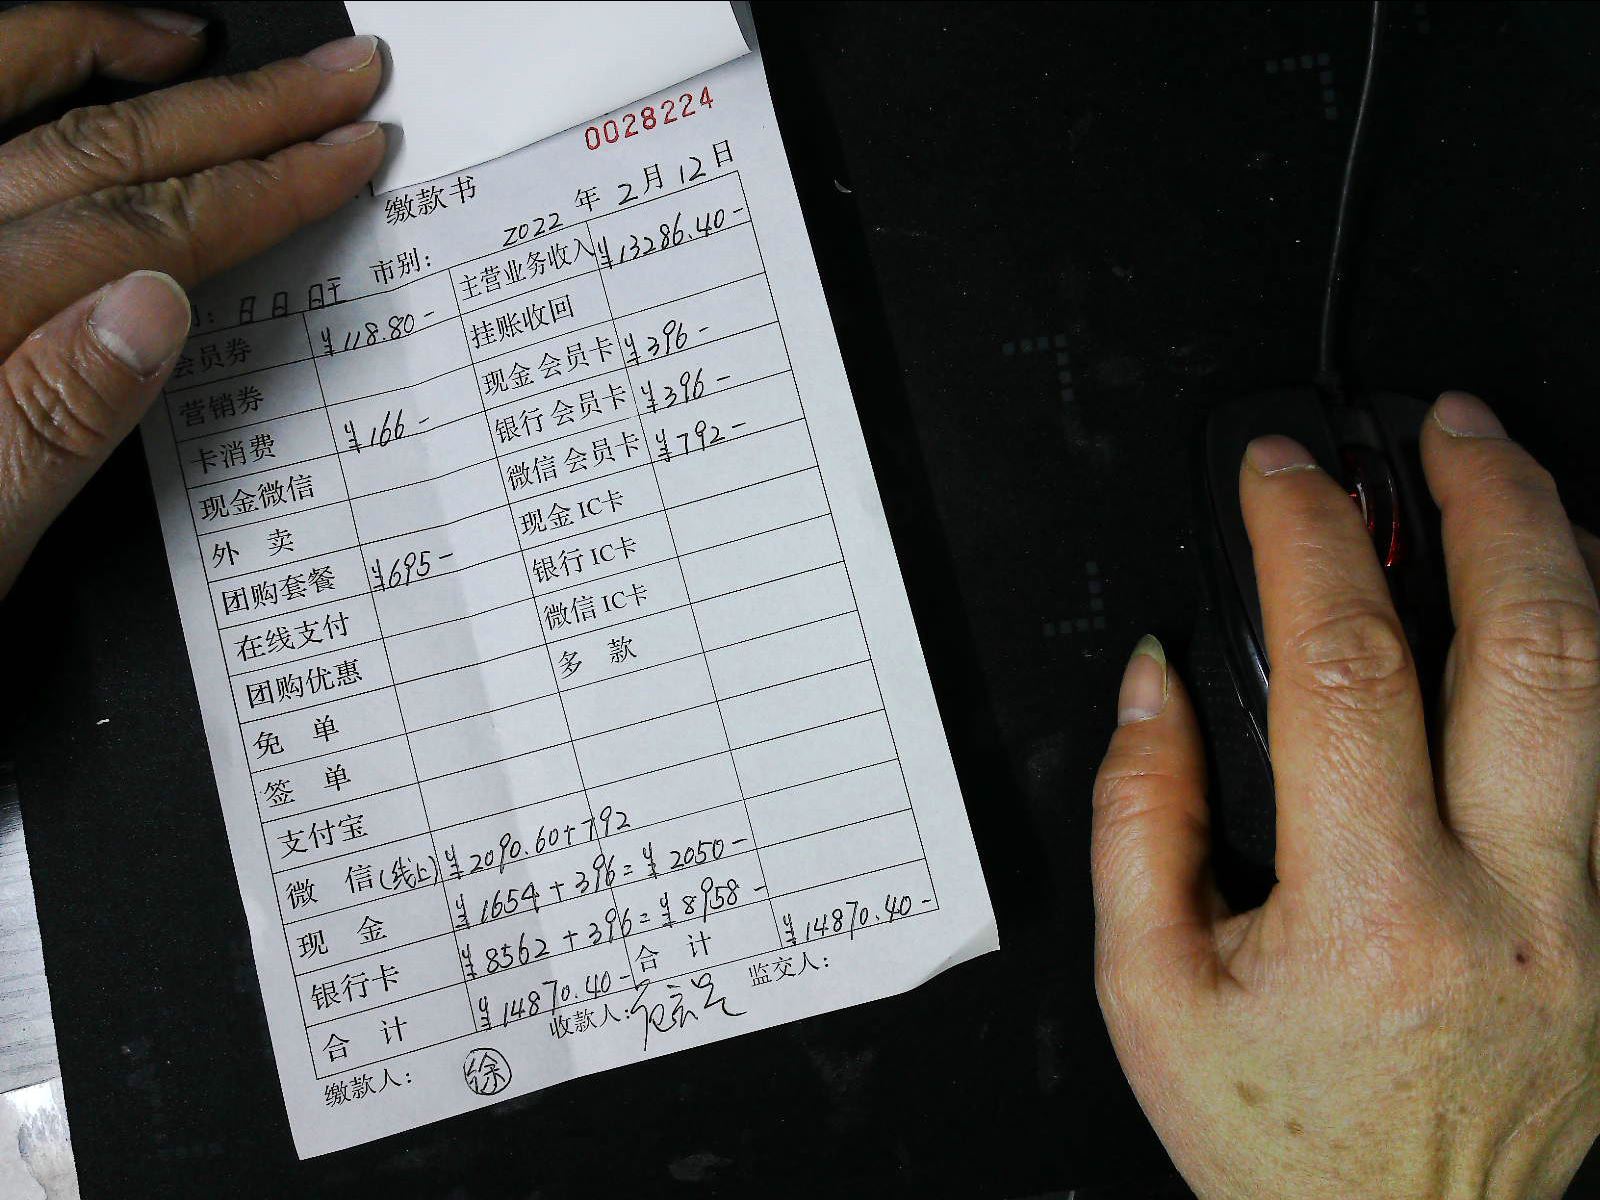 0028224
缴款书
2022 年 2 月 12 日
: 日 日 日 市别:
会员券 ¥118.80- 主营业务收入 ¥13286.40-
营销券 挂账收回
卡消费 ¥166- 现金会员卡 ¥396-
现金微信 银行会员卡 ¥396-
外 卖 微信会员卡 ¥792-
团购套餐 ¥695- 现金IC卡
在线支付 银行IC卡
团购优惠 微信IC卡
免 单 多 款
签 单
支付宝
微 信(线上) ¥2090.60+792
现 金 ¥1654+396=¥2050-
银行卡 ¥8562+396=¥8958-
合 计 ¥14870.40- 合 计 ¥14870.40-
缴款人: 徐 收款人: 监交人: